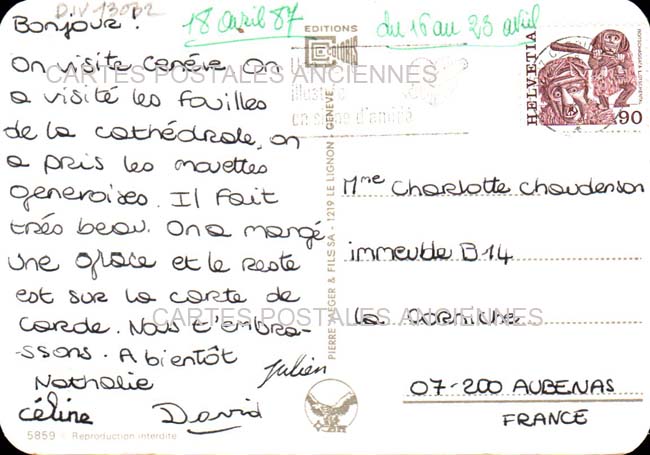 D.IV 13032
Bonjour!
18 avril 87
EDITIONS
du 16 au 23 avril
On visite Genève. On
a visité les fouilles
de la cathédrale, on
a pris les mouettes
genevoises. Il fait
trés beau. On a mangé
une glace et le reste
est sur la carte de
Carole. Nous t'embra-
-ssons. A bientôt
Nathalie
Julien
Céline David
5859 Reproduction interdite
PIERRE JAEGER & FILS SA - 1219 LE LIGNON - GENEVE
HELVETIA
90
Mme Charlotte Chaudenson
immeuble B14
la Corniche
07-200 AUBENAS
FRANCE
CARTES POSTALES ANCIENNES
CARTES POSTALES ANCIENNES